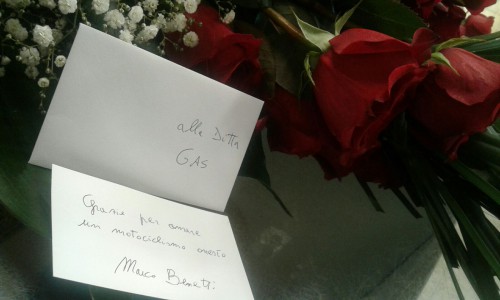 alla Ditta
GAS
Grazie per amare
un motociclismo onesto
Marco Benatti